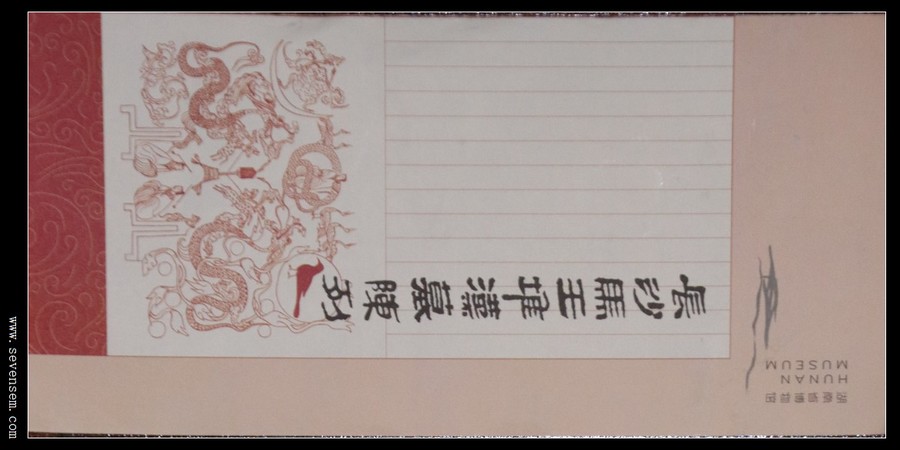 長沙馬王堆漢墓陳列
HUNAN
MUSEUM
www.sevensem.com